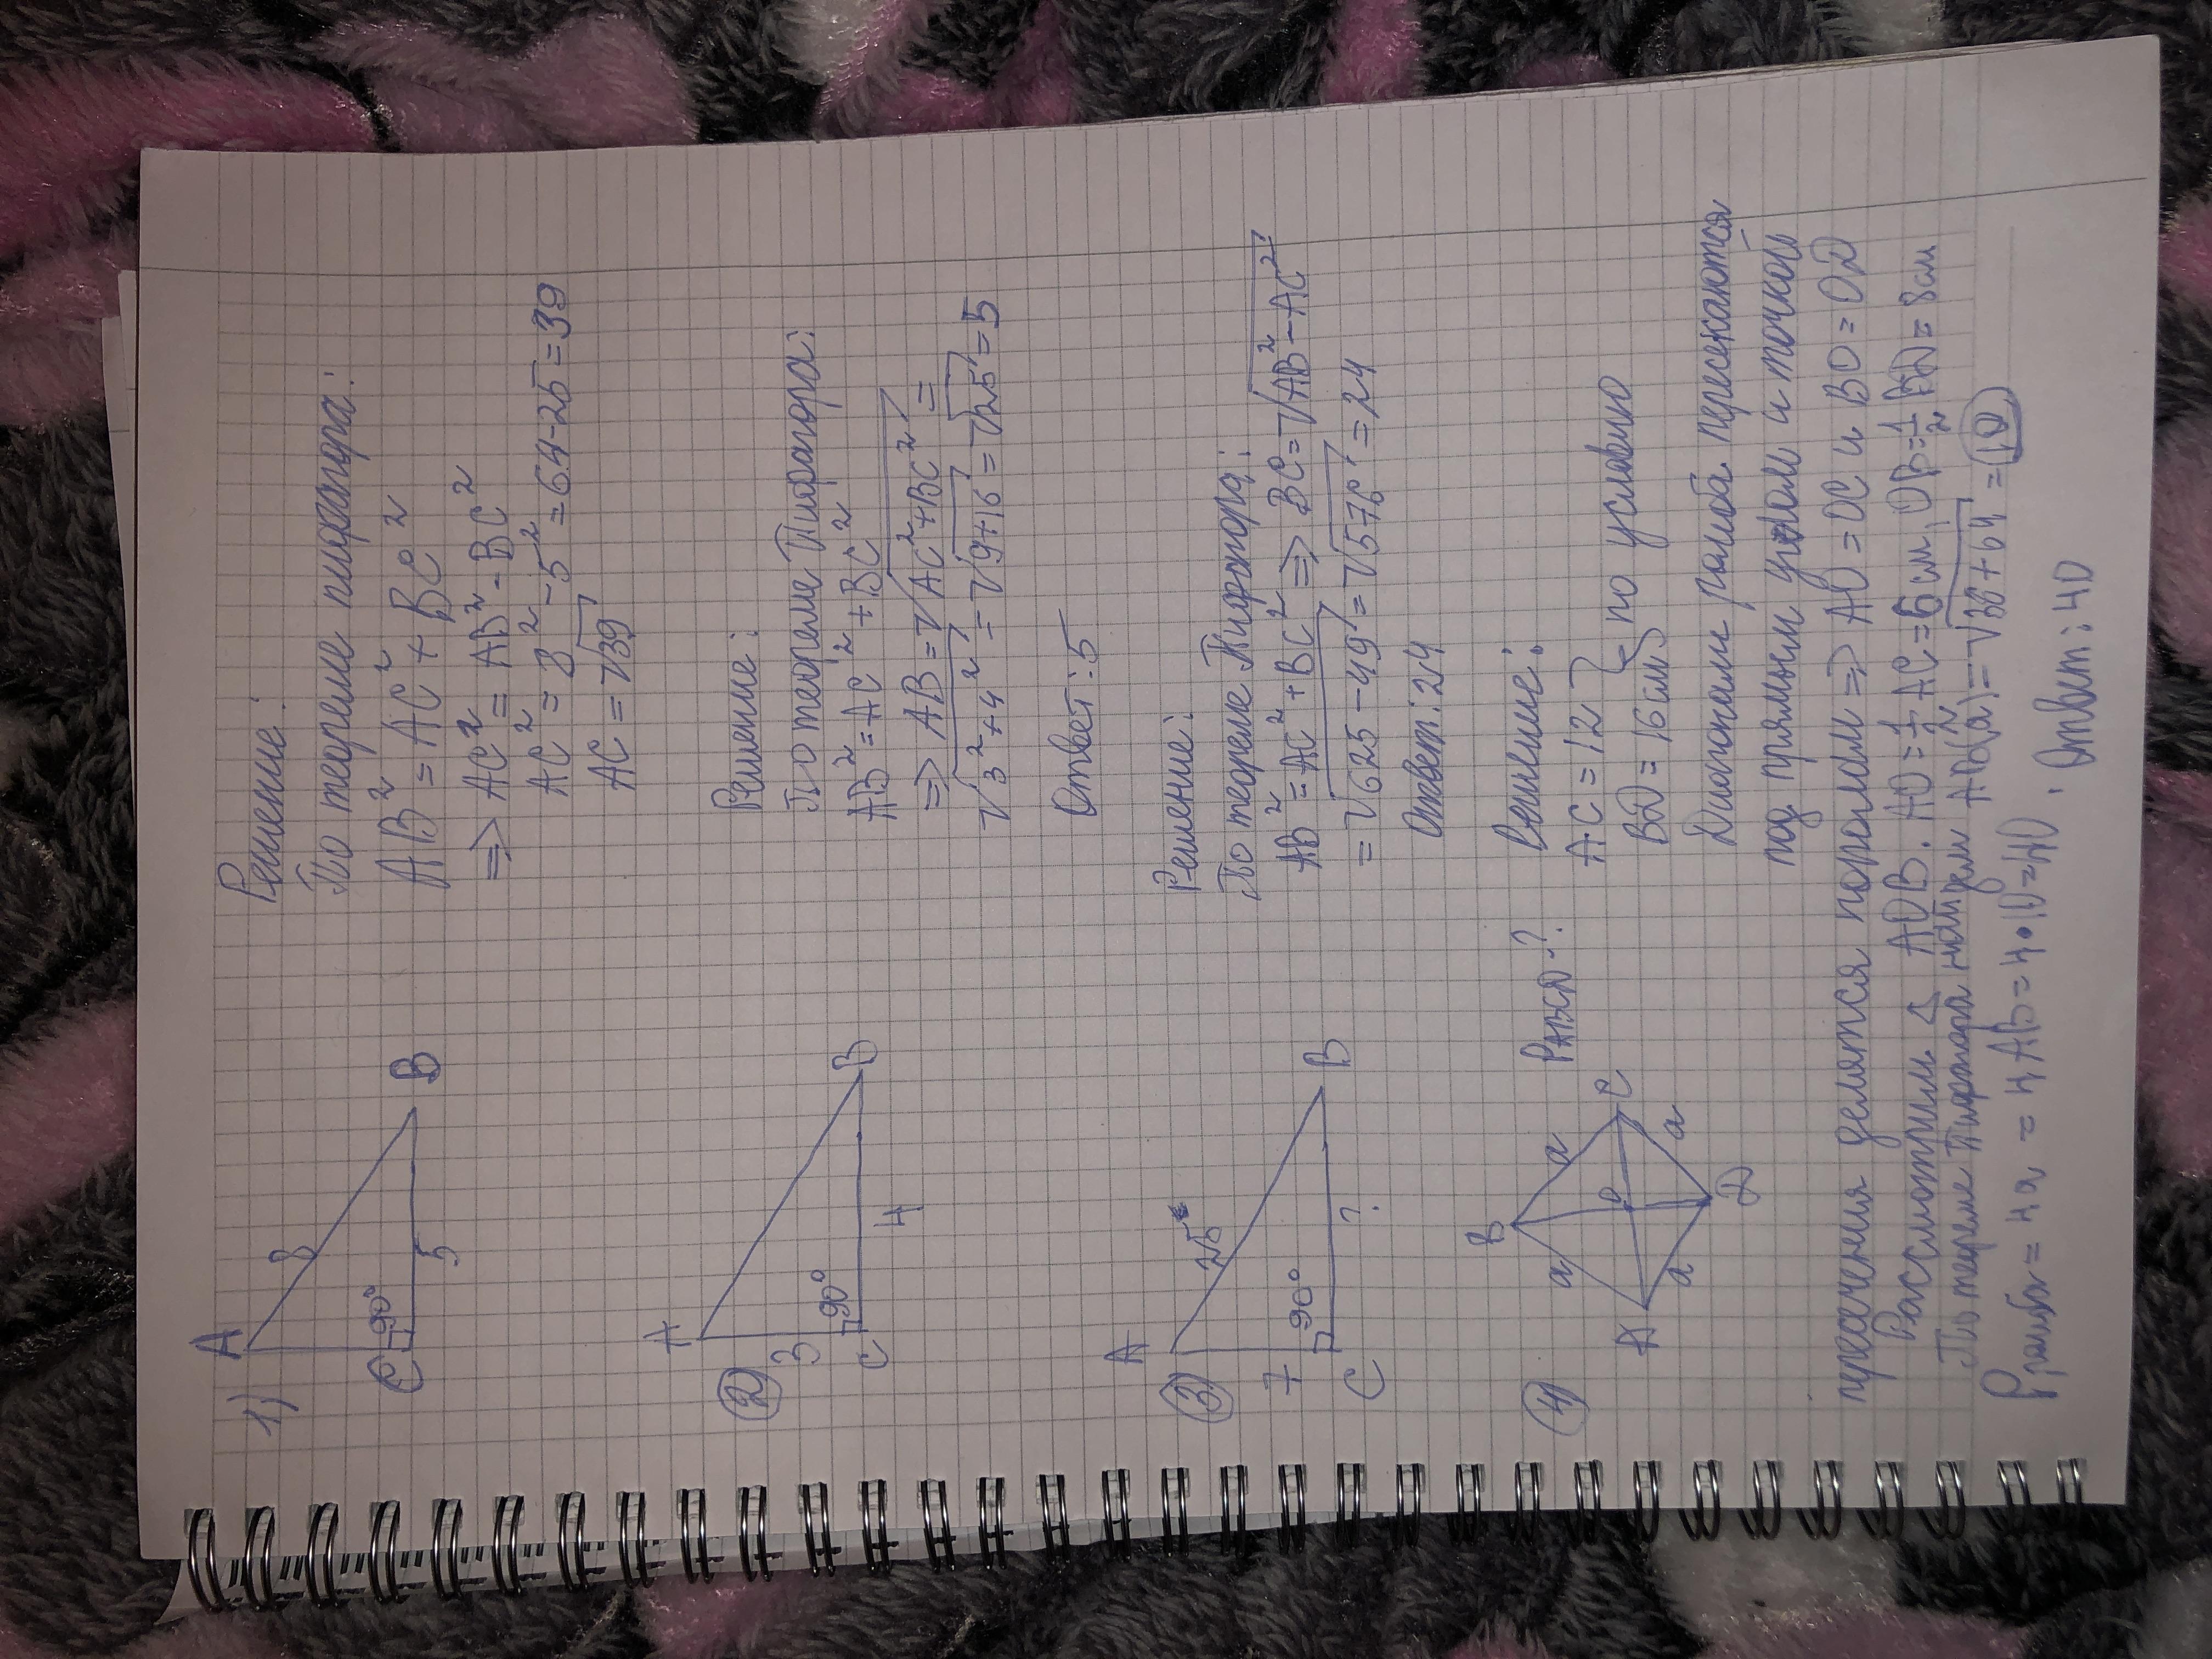 1)
A
8
C
90°
5
B
Решение:
По теореме пифагора:
AB² = AC² + BC²
=> AC² = AB² - BC²
AC² = 8² - 5² = 64-25 = 39
AC = √39
2
A
3
C
90°
4
B
Решение:
По теореме Пифагора:
AB² = AC² + BC²
=> AB = √AC²+BC² =
√3²+4² = √9+16 = √25 = 5
Ответ: 5
3
A
7
25
C
90°
?
B
Решение:
По теореме Пифагора:
AB² = AC² + BC² => BC = √AB² - AC²
= √625 - 49 = √576 = 24
Ответ: 24
4
B
a
a
A
O
C
a
a
D
P ABCD - ?
Решение:
AC = 12
BD = 16 см
} по условию
Диагонали ромба пересекаются
под прямым углом и точкой
пересечения делятся пополам => AO = OC и BO = OD
Рассмотрим △ AOB. AO = 1/2 AC = 6 см, OB = 1/2 BD = 8 см
По теореме Пифагора найдем AB(a) = √36 + 64 = 10
Pромба = 4a = 4AB = 4•10 = 40. Ответ: 40